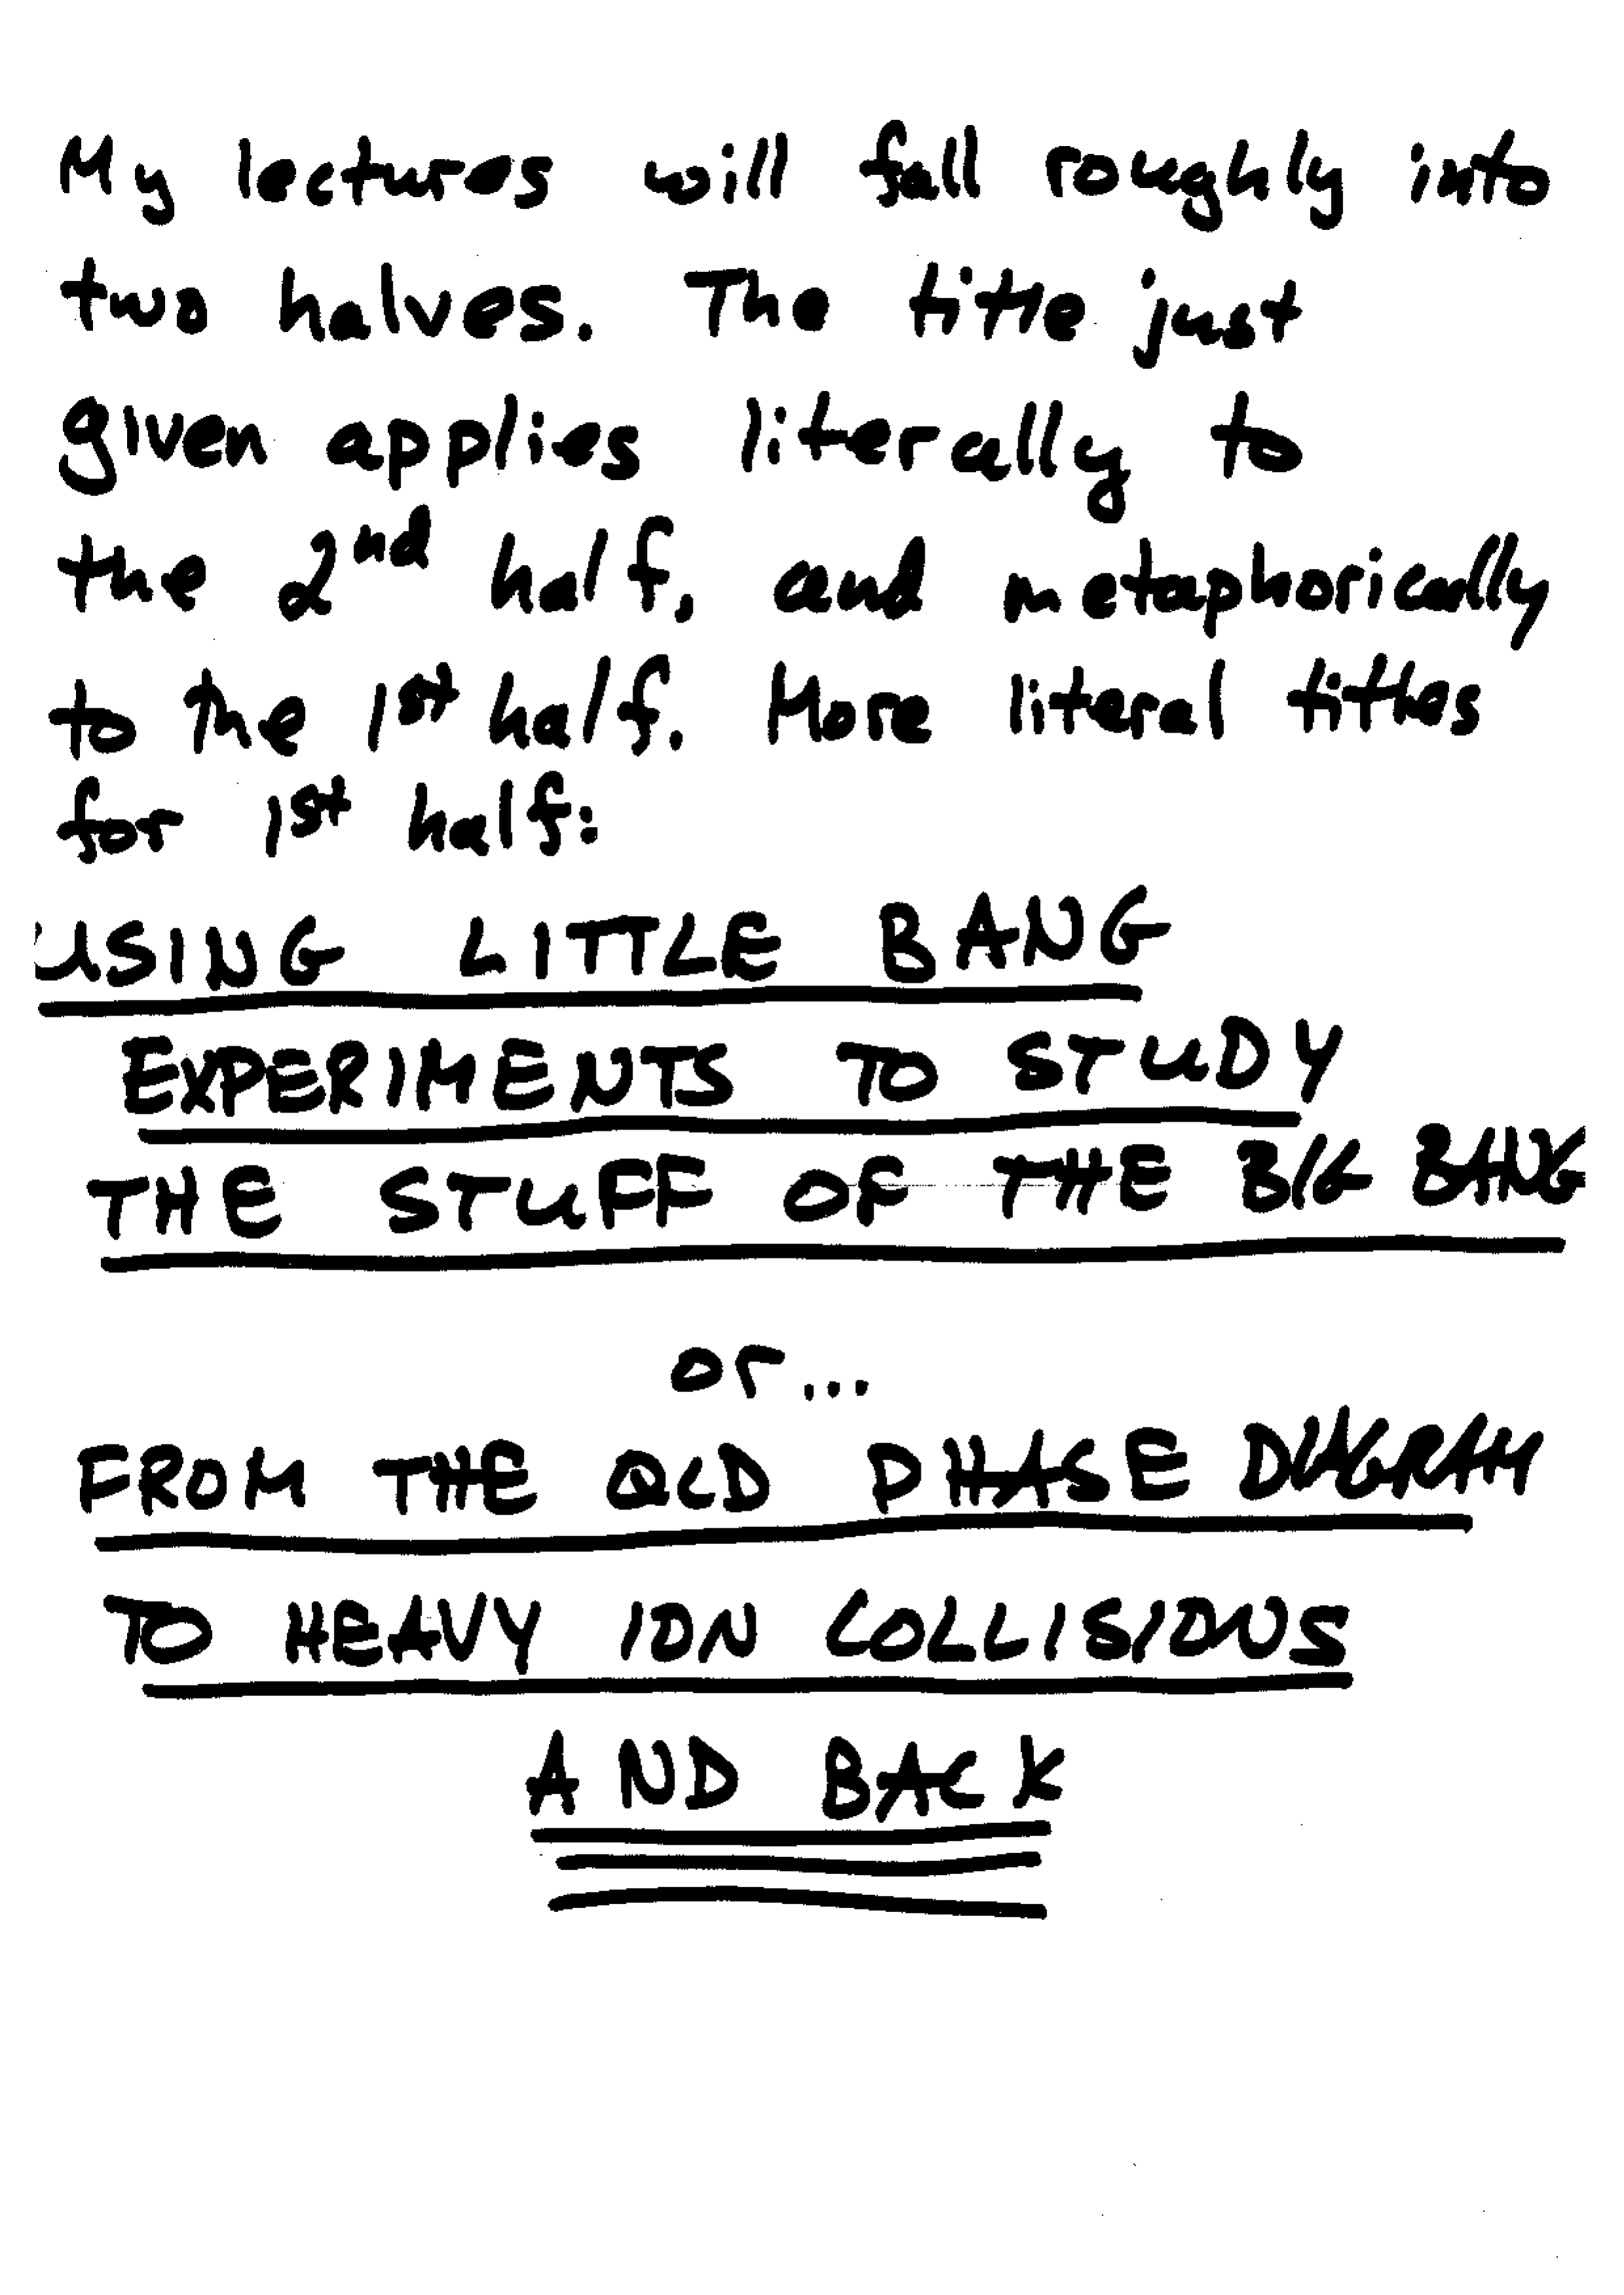 My lectures will fall roughly into
two halves. The title just
given applies literally to
the 2nd half, and metaphorically
to the 1st half. More literal titles
for 1st half:
USING LITTLE BANG
EXPERIMENTS TO STUDY
THE STUFF OF THE BIG BANG
or...
FROM THE QCD PHASE DIAGRAM
TO HEAVY ION COLLISIONS
AND BACK